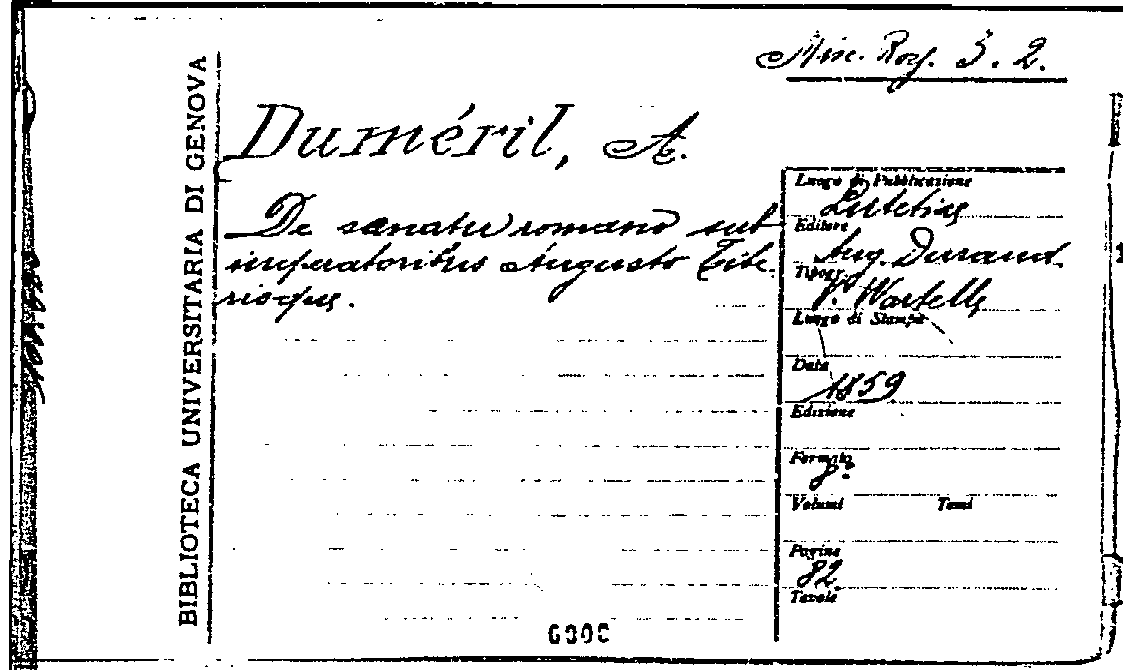 Misc. Rog. 3. 2.
BIBLIOTECA UNIVERSITARIA DI GENOVA
Duméril, A.
De senatu romano sub
imperatoribus Augusto Tibe-
rioque.
Luogo di Pubblicazione
Lutetiae
Editore
Aug. Durand.
Tipogr.
Luogo di Stampa
Data
1859
Edizione
Formato
8.°
Volumi Tomi
Pagine
82
Tavole